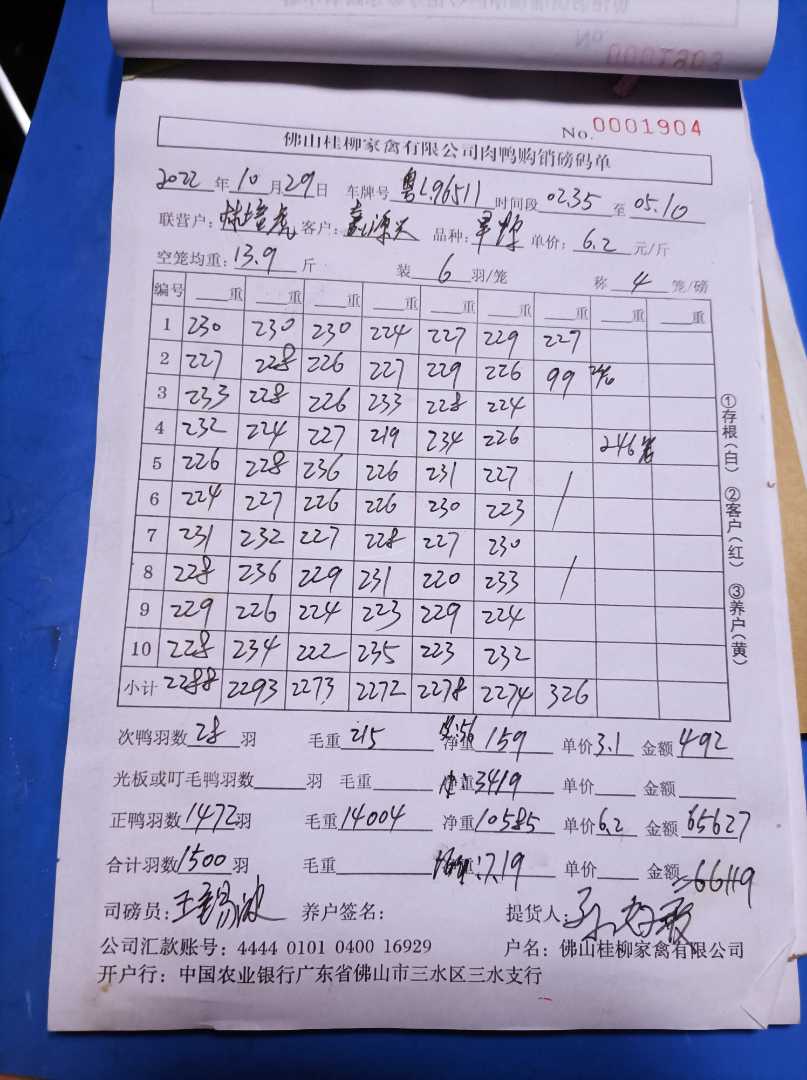 No. 0001904
佛山桂柳家禽有限公司肉鸭购销磅码单
2022 年 10 月 29 日 车牌号 粤L96511 时间段 02.35 至 05.10
联营户: 客户: 源兴 品种: 单价: 6.2 元/斤
空笼均重: 13.9 斤 装 6 羽/笼 称 4 笼/磅
编号 重 重 重 重 重 重 重 重 重
1 230 230 230 224 227 229 227
2 227 228 226 227 229 226 99
3 233 228 226 233 228 224
4 232 224 227 219 234 226 246笼
5 226 228 236 226 231 227 /
6 224 227 226 226 230 223
7 231 232 227 228 227 230
8 228 236 229 231 220 233 /
9 229 226 224 223 229 224
10 228 234 222 235 223 232
小计 2288 2293 2273 2272 2278 2274 326
次鸭羽数 28 羽 毛重 215 :56 净重 159 单价 3.1 金额 492
光板或叮毛鸭羽数 羽 毛重 净重 3419 单价 金额
正鸭羽数 1472 羽 毛重 14004 净重 10585 单价 6.2 金额 65627
合计羽数 1500 羽 毛重 重: 7.19 单价 金额 66119
司磅员: 王 波 养户签名: 提货人:
公司汇款账号: 4444 0101 0400 16929 户名: 佛山桂柳家禽有限公司
开户行: 中国农业银行广东省佛山市三水区三水支行
①存根(白) ②客户(红) ③养户(黄)